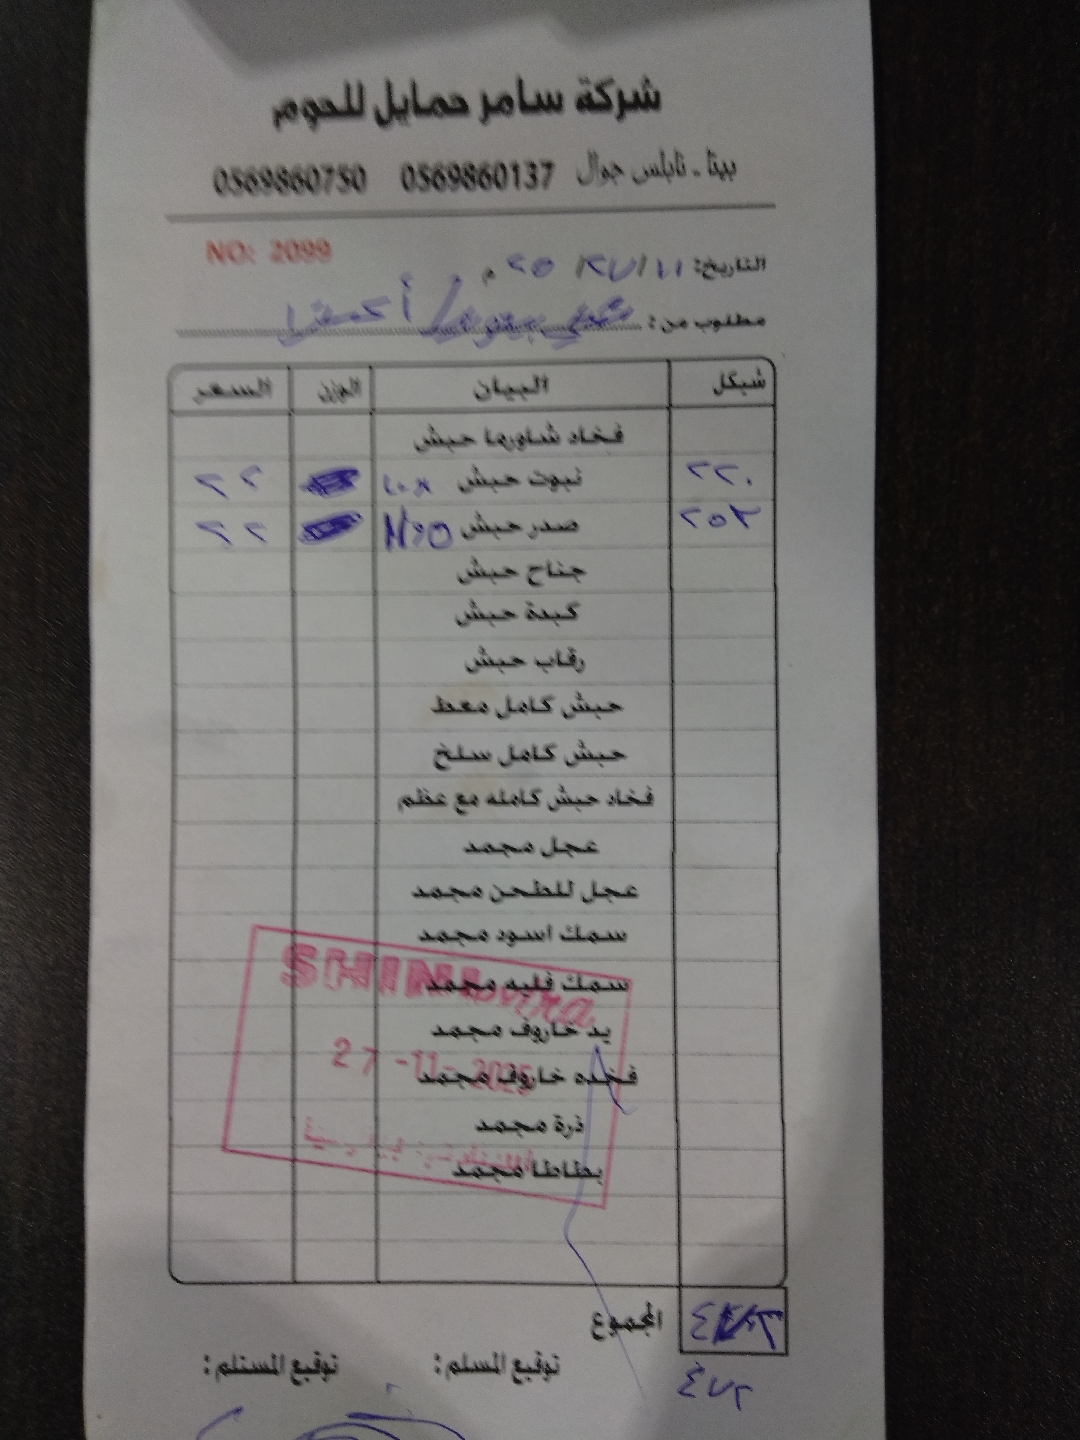 شركة سامر حمايل للحوم
بيتا - نابلس جوال 0569860137 0569860750
NO: 2099
التاريخ: ١١/٢٧/ ٢٥ م
مطلوب من:
شيكل البيان الوزن السعر
فخاد شاورما حبش
٢٢٠ نبوت حبش ٢٢
٢٥٣ صدر حبش ١١,٥ ٢٢
جناح حبش
كبدة حبش
رقاب حبش
حبش كامل معط
حبش كامل سلخ
فخاد حبش كامله مع عظم
عجل مجمد
عجل للطحن مجمد
سمك اسود مجمد
سمك فليه مجمد
يد خاروف مجمد
فخده خاروف مجمد
ذرة مجمد
بطاطا مجمد
27 -11- 2025
المجموع
٤٧٣
توقيع المسلم: توقيع المستلم: